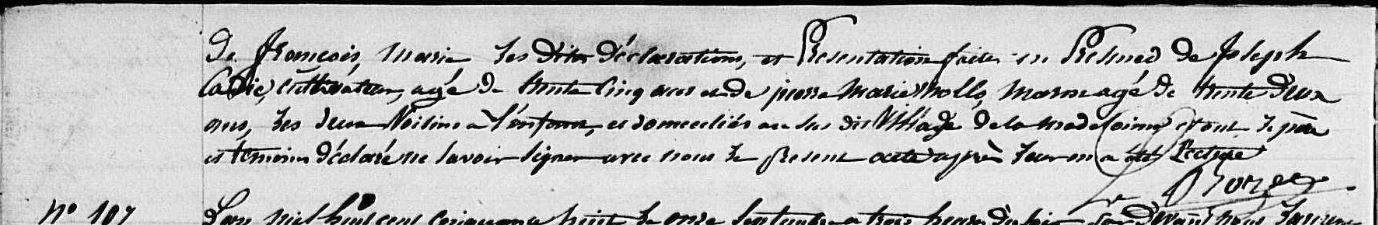 de françois, marie les dites déclarations, et Présentation faites en Présence de Joseph
cultivateur, agé de trente cinq ans et de pierre Marie molle, marin agé de trente deux
ans, les deux Voisins à l'enfant, et domiciliés au sus dit Village de la madelaine et ont le père
et témoins déclaré ne savoir signer avec nous le présent acte après Leur en a été Lecture
Le
N° 107 L'an mil huit cent cinquante huit le onze Septembre a trois heures du soir Par devant nous